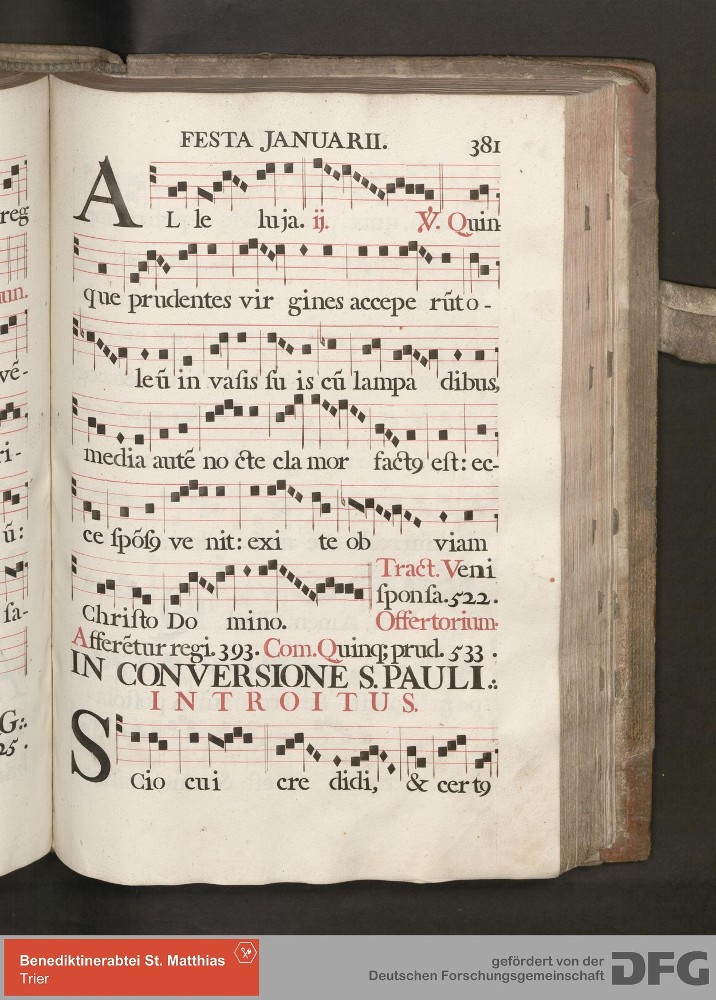 FESTA JANUARII.
381
reg
ALle luja. ij. ℣. Quin-
un.
que prudentes vir gines accepe rũt o-
vẽ-
leũ in vasis su is cũ lampa dibus,
ri-
media autẽ no cte cla mor factꝯ est: ec-
ũ:
ce spõsꝯ ve nit: exi te ob viam
sa-
Christo Do mino.
Tract. Veni
sponsa. 522.
Offertorium.
Afferẽtur regi. 393. Com. Quinq; prud. 533.
IN CONVERSIONE S. PAULI.:
INTROITUS.
G:.
25.
SCio cui cre didi, & certꝯ
Benediktinerabtei St. Matthias
Trier
gefördert von der
Deutschen Forschungsgemeinschaft
DFG